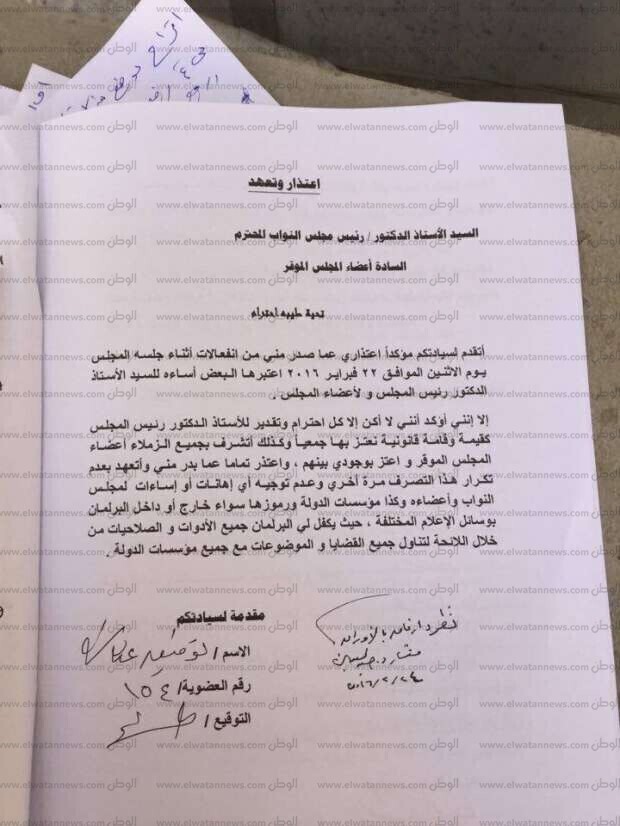 اعتذار وتعهد
السيد الأستاذ الدكتور / رئيس مجلس النواب المحترم
السادة أعضاء المجلس الموقر
تحية طيبه احتراء
أتقدم لسيادتكم مؤكداً اعتذاري عما صدر مني من انفعالات أثناء جلسه المجلس
يوم الاثنين الموافق ٢٢ فبراير ٢٠١٦ اعتبرها البعض أساءه للسيد الأستاذ
الدكتور رئيس المجلس و لأعضاء المجلس .
إلا إنني أوكد أنني لا أكن إلا كل احترام وتقدير للأستاذ الدكتور رئيس المجلس
كقيمة وقامة قانونية نعتز بها جمعياً وكذلك أتشرف بجميع الزملاء أعضاء
المجلس الموقر و اعتز بوجودي بينهم ، واعتذر تماما عما بدر مني وأتعهد بعدم
تكرار هذا التصرف مرة أخري وعدم توجيه أي إهانات أو إساءات لمجلس
النواب وأعضاءه وكذا مؤسسات الدولة ورموزها سواء خارج أو داخل البرلمان
بوسائل الإعلام المختلفة ، حيث يكفل لي البرلمان جميع الأدوات و الصلاحيات من
خلال اللائحة لتناول جميع القضايا و الموضوعات مع جميع مؤسسات الدولة .
مقدمة لسيادتكم
الاسم / توفيق عكاشة
رقم العضوية/ ١٥٤
التوقيع /
٢٠١٦/٢/٢٤
الوطن www.elwatannews.com